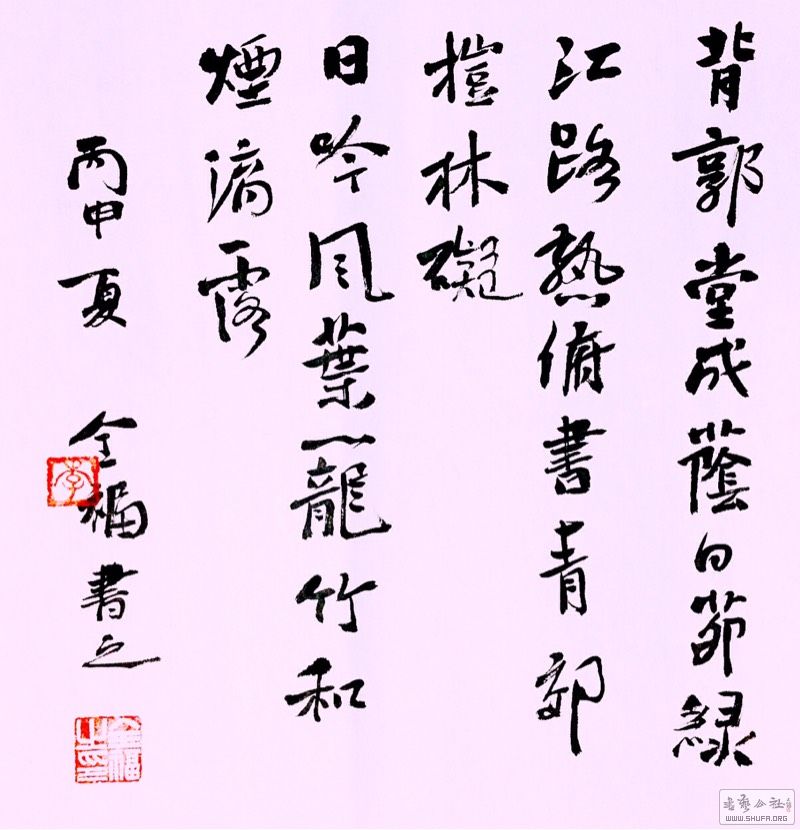 背郭堂成蔭白茆緣
江路熟俯書青郊
榿林礙
日吟風葉籠竹和
煙滴露
丙申夏 全福書之
李
全福之印
书艺公社
WWW.SHUFA.ORG